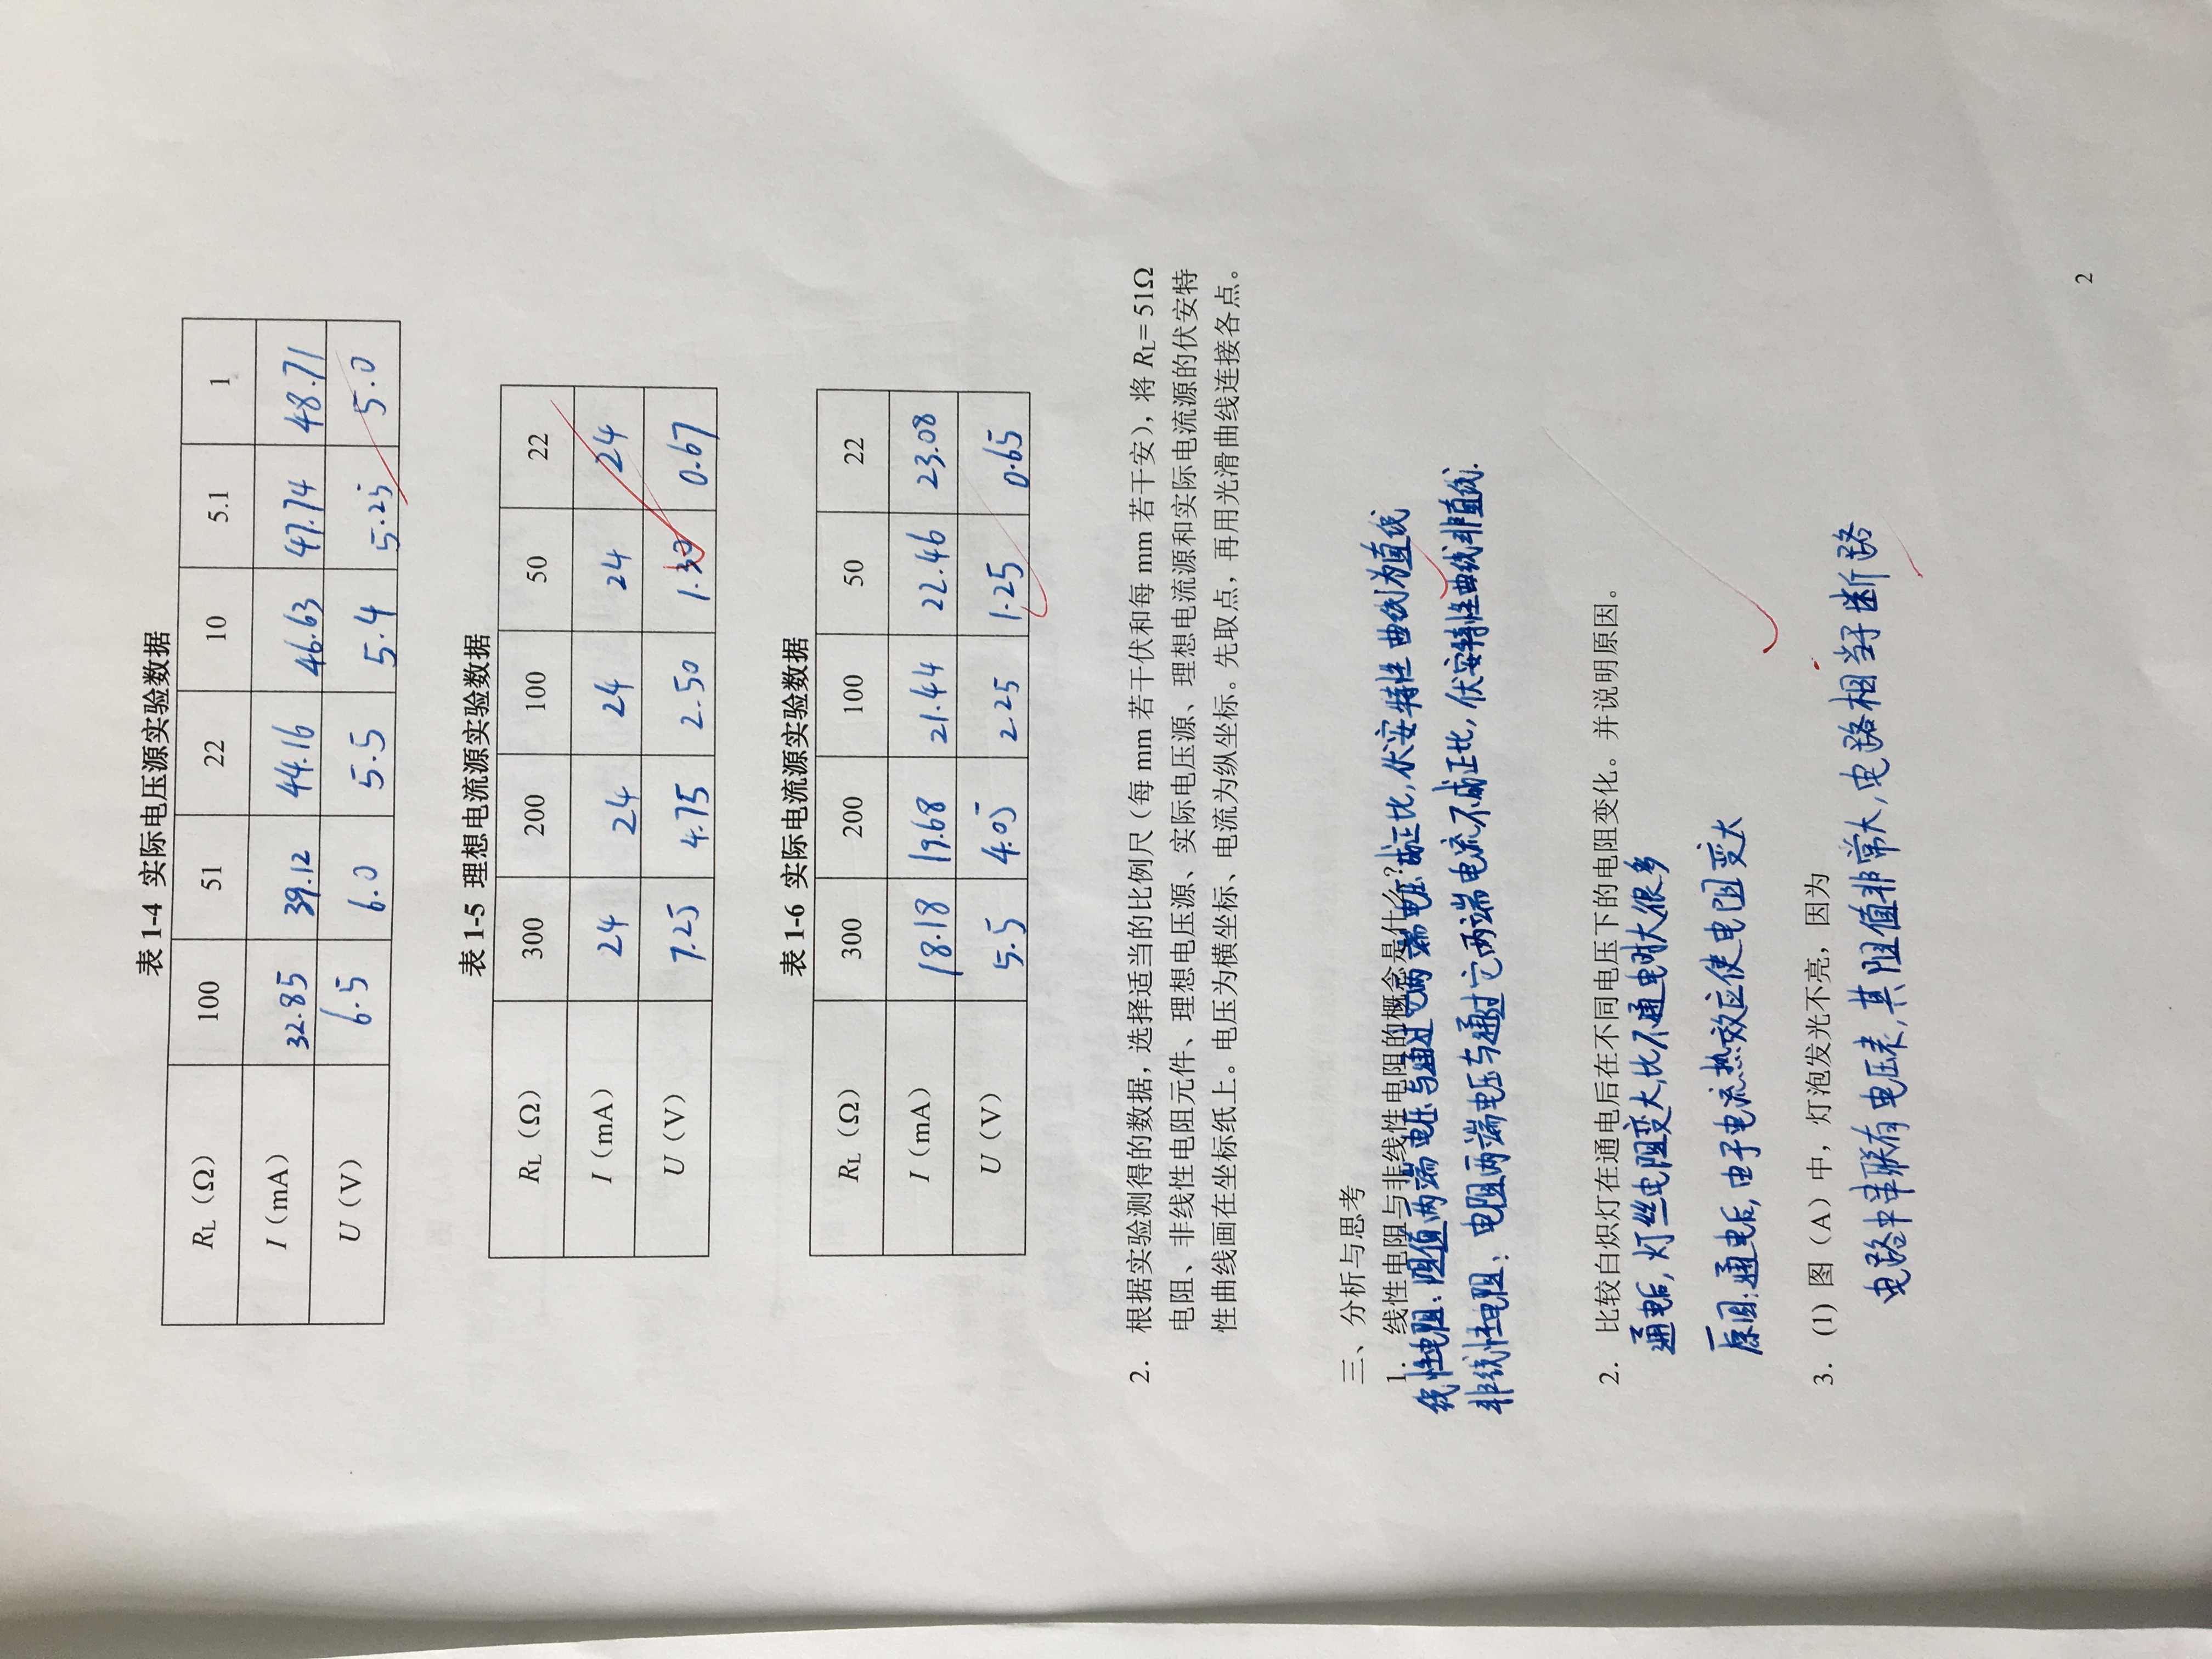 表 1-4 实际电压源实验数据
RL（Ω） 100 51 22 10 5.1 1
I（mA） 32.85 39.12 44.16 46.63 47.74 48.71
U（V） 6.5 6.0 5.5 5.4 5.25 5.0
表 1-5 理想电流源实验数据
RL（Ω） 300 200 100 50 22
I（mA） 24 24 24 24 24
U（V） 7.25 4.75 2.50 1.30 0.67
表 1-6 实际电流源实验数据
RL（Ω） 300 200 100 50 22
I（mA） 18.18 19.68 21.44 22.46 23.08
U（V） 5.5 4.05 2.25 1.25 0.65
2. 根据实验测得的数据，选择适当的比例尺（每 mm 若干伏和每 mm 若干安），将 RL= 51Ω
电阻、非线性电阻元件、理想电压源、实际电压源、理想电流源和实际电流源的伏安特
性曲线画在坐标纸上。电压为横坐标、电流为纵坐标。先取点，再用光滑曲线连接各点。
三、分析与思考
1. 线性电阻与非线性电阻的概念是什么？
线性电阻：阻值两端电压与通过它两端电压成正比，伏安特性曲线为直线
非线性电阻：电阻两端电压与通过它两端电流不成正比，伏安特性曲线非直线.
2. 比较白炽灯在通电后在不同电压下的电阻变化。并说明原因。
通电后，灯丝电阻变大，比不通电时大很多
原因：通电后，由于电流热效应使电阻变大
3. (1) 图（A）中，灯泡发光不亮，因为
电路中串联有电压表，其阻值非常大，电路相当于断路
2